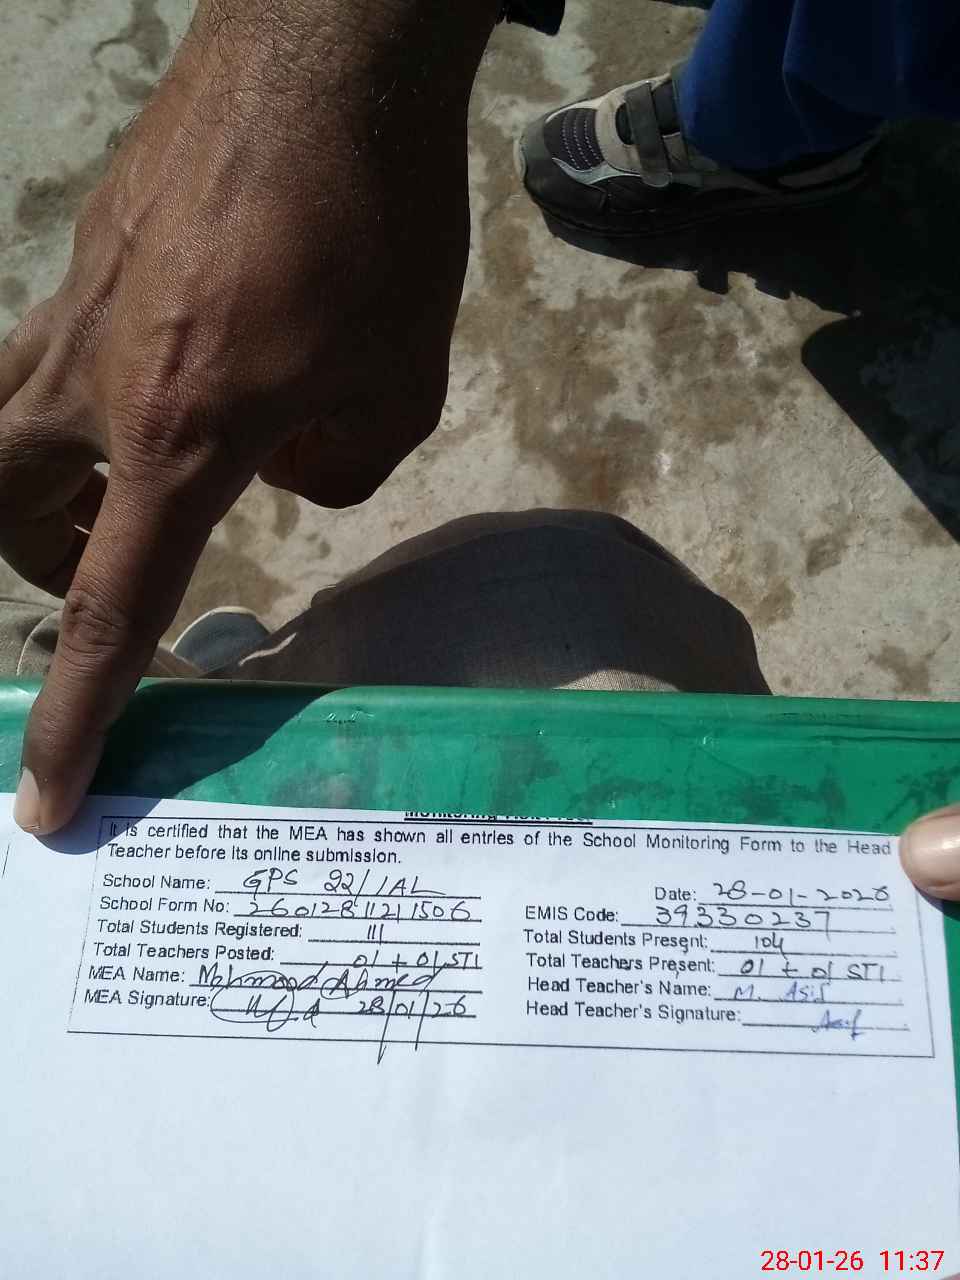 It is certified that the MEA has shown all entries of the School Monitoring Form to the Head
Teacher before its online submission.
School Name: GPS 22/1AL
Date: 28-01-2026
School Form No: 26012811211506
EMIS Code: 39330237
Total Students Registered: 111
Total Students Present: 104
Total Teachers Posted: 01 + 01 STI
Total Teachers Present: 01 + 01 STI
MEA Name: Mehmood Ahmed
Head Teacher's Name: M. Asif
MEA Signature: 28/01/26
Head Teacher's Signature: Asif
28-01-26 11:37